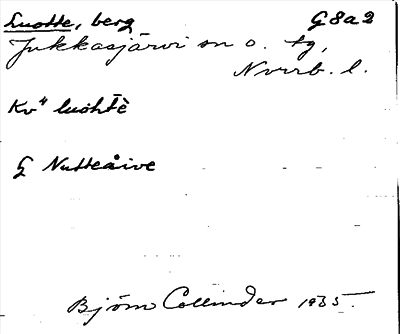 Luotte, berg G8a2
Jukkasjärvi sn o. tg,
Norrb. l.
Kv" luohtè
G Nutteåive
Björn Collinder 1935.